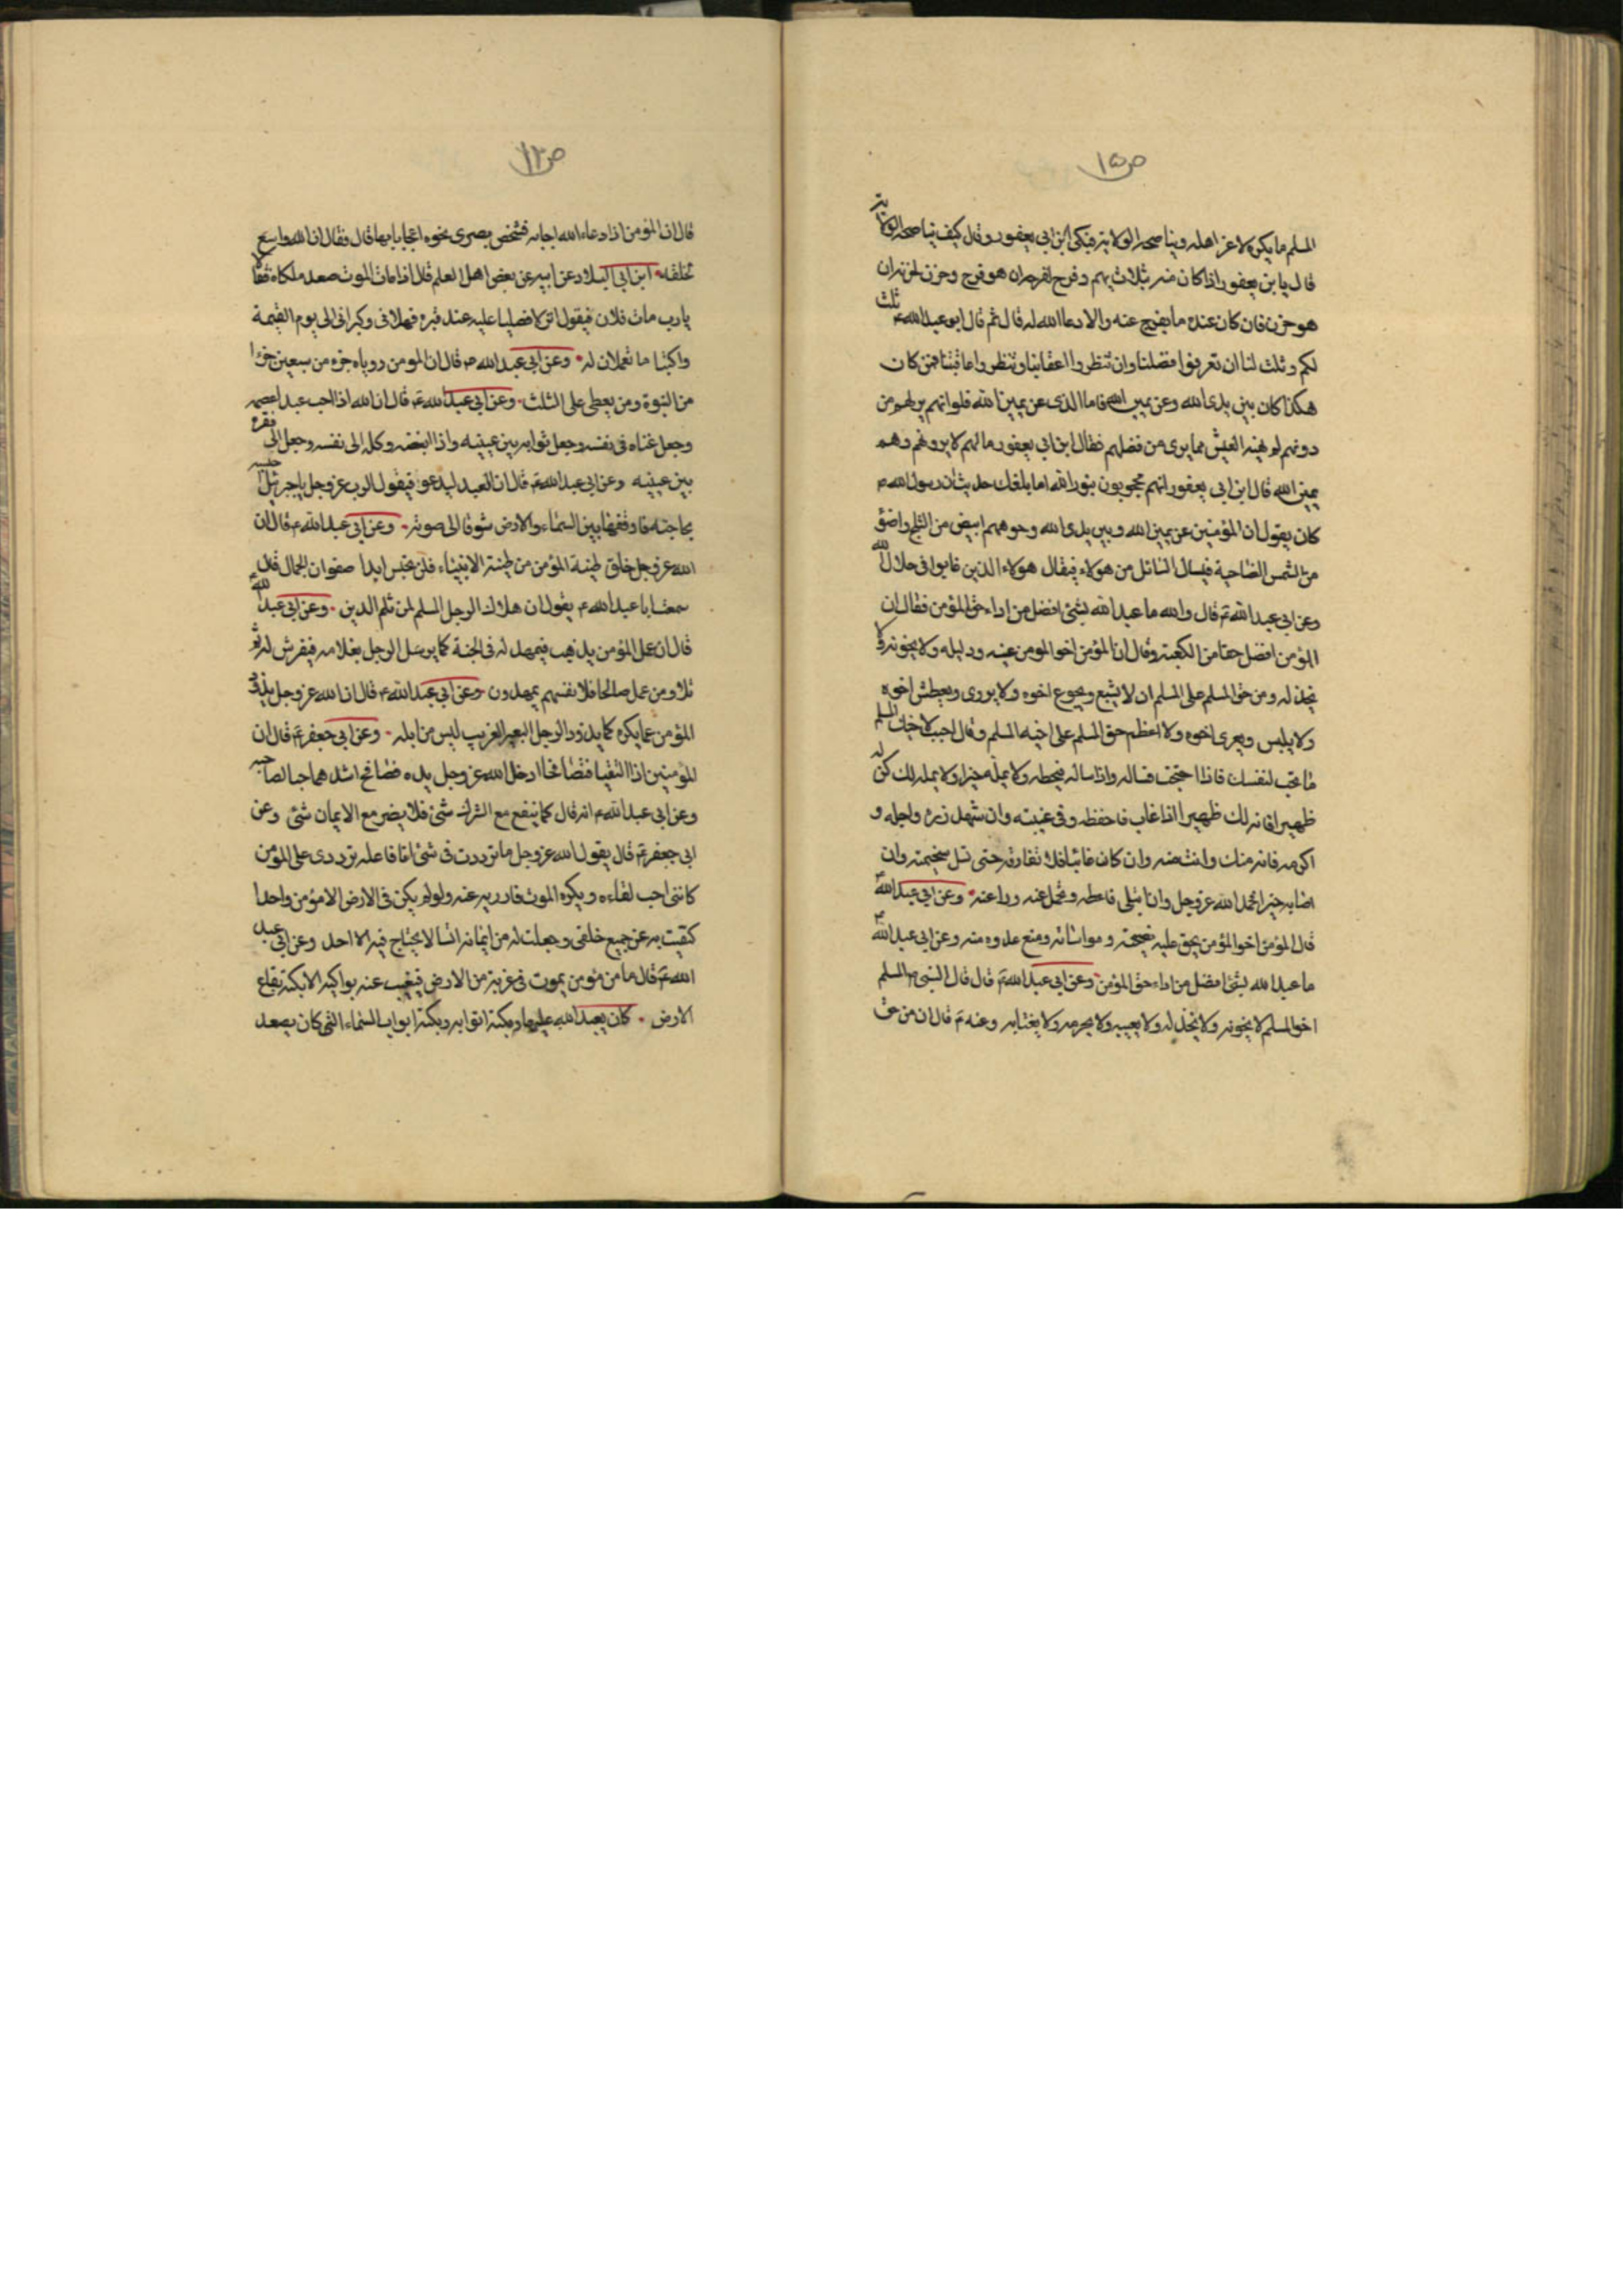 ص ١٥
المسلم ما يكره لاعز اهله ويناصحه الولاية فبكى ابن ابي يعفور وقال كيف يناصحه الولاية
قال يا بن يعفور اذا كان منه بثلاث بهم وفرح لفرحه ان هو فرح وحزن لحزنه ان
هو حزن فان كان عنده ما يفرج عنه والا دعا الله له قال ثم قال ابو عبد الله ع ثلث
لكم وثلث لنا ان تعرفوا فضلنا وان تنظروا اعقابنا وتنظروا عاقبتنا فمن كان
هكذا كان بين يدي الله وعن يمين الله فاما الذي عن يمين الله فلو انهم يرلهم من
دونهم لم يهنه العيش مما يرى من فضلهم فقال ابن ابي يعفور ما لهم لا يرونهم وهم
يمين الله قال ابن ابي يعفور انهم محجوبون بنور الله اما بلغك حديث ان رسول الله ص
كان يقول ان المؤمنين عن يمين الله وبين يدي الله وجوههم ابيض من الثلج واضوء
من الشمس الضاحية فيسال السائل من هولاء فيقال هولاء الذين تحابوا في جلال الله
وعن ابي عبد الله ع قال والله ما عبد الله بشئ افضل من اداء حق المؤمن فقال ان
المؤمن افضل حقا من الكعبة وقال ان المؤمن اخو المومن عينه ودليله ولا يخونه ولا
يخذله ومن حق المسلم على المسلم ان لا يشبع ويجوع اخوه ولا يروى ويعطش اخوه
ولا يلبس ويعرى اخوه ولا اعظم حق المسلم على اخيه المسلم وقال احب لاخيك المسلم
ما تحب لنفسك فاذا احتجت فساله واذا سالك فاعطه ولا يمله خيرا ولا يمله لك كن له
ظهيرا فانه لك ظهيرا اذا غاب فاحفظه في غيبته وان شهد زره واجله و
اكرمه فانه منك وانت منه وان كان عاتبا فلا تفارقه حتى تسل سخيمته وان
اصابه خير فاحمد الله عز وجل وان ابتلى فاعطه وتحمل عنه وراعنه وعن ابي عبد الله ع
قال المؤمن اخو المؤمن يحق عليه نصيحته ومواساته ومنع عدوه منه وعن ابي عبد الله ع
ما عبد الله بشئ افضل من اداء حق المؤمن وعن ابي عبد الله ع قال قال النبي ص المسلم
اخو المسلم لا يخونه ولا يخذله ولا يعيبه ولا يحرمه ولا يغتابه وعنه ع قال ان من حق
ص ١٣
قال ان المؤمن اذا دعاء الله اجابه فشخص بصرى نحوه اعجابا بها قال فقال ان الله واسع
لخلقه ابن ابي البلاد عن ابيه عن بعض اهل العلم قال اذا مات الموت صعد ملكاه فقالا
يا رب مات فلان فيقول انزلا فصليا عليه عند قبره فهللانى وكبرانى الى يوم القيمة
واكتبا ما تعملان له وعن ابي عبد الله ع قال ان المومن روياه جزء من سبعين جزءا
من النبوة ومن يعطى على الثلث وعن ابي عبد الله ع قال ان الله اذا احب عبدا عصمه
وجعل غناه في نفسه وجعل ثوابه بين عينيه واذا ابغضه وكله الى نفسه وجعل فقره
بين عينيه وعن ابي عبد الله ع قال ان العبد ليدعو فيقول الرب عز وجل يا جبرئيل احبسه
بحاجته فاوقفها بين السماء والارض شوقا الى صوته وعن ابي عبد الله ع قال ان
الله عز وجل خلق طينة المؤمن من طينة الانبياء فلن تخبس ابدا صفوان الجمال قال
سمعت ابا عبد الله ع يقول ان هلاك الرجل المسلم لمن ثلم الدين وعن ابي عبد الله ع
قال ان عمل المؤمن يذهب فيمهد له في الجنة كما يرسل الرجل بغلامه فيفرش له ثم
تلا ومن عمل صالحا فلانفسهم يمهدون وعن ابي عبد الله ع قال ان الله عز وجل يذود
المؤمن عما يكره كما يذود الرجل البعير الغريب ليس من ابله وعن ابي جعفر ع قال ان
المؤمنين اذا التقيا فتصافحا ادخل الله عز وجل يده فصافح اشدهما حبا لصاحبه
وعن ابي عبد الله ع انه قال كما ينفع مع الشرك شئ فلا يضر مع الايمان شئ وعن
ابي جعفر ع قال يقول الله عز وجل ما ترددت في شئ انا فاعله ترددى على المؤمن
كاننى احب لقاءه ويكره الموت فادريه عنه ولو لم يكن في الارض الا مؤمن واحدا
كتفيت به عن جميع خلقى وجعلت له من ايمانه انسا لا يحتاج فيه الا احد وعن ابي عبد
الله ع قال ما من مؤمن يموت في غربة من الارض فيغيب عنه بواكيه الا بكته بقاع
الارض كان يعبد الله عليها وبكته اثوابه وبكته ابواب السماء التي كان يصعد